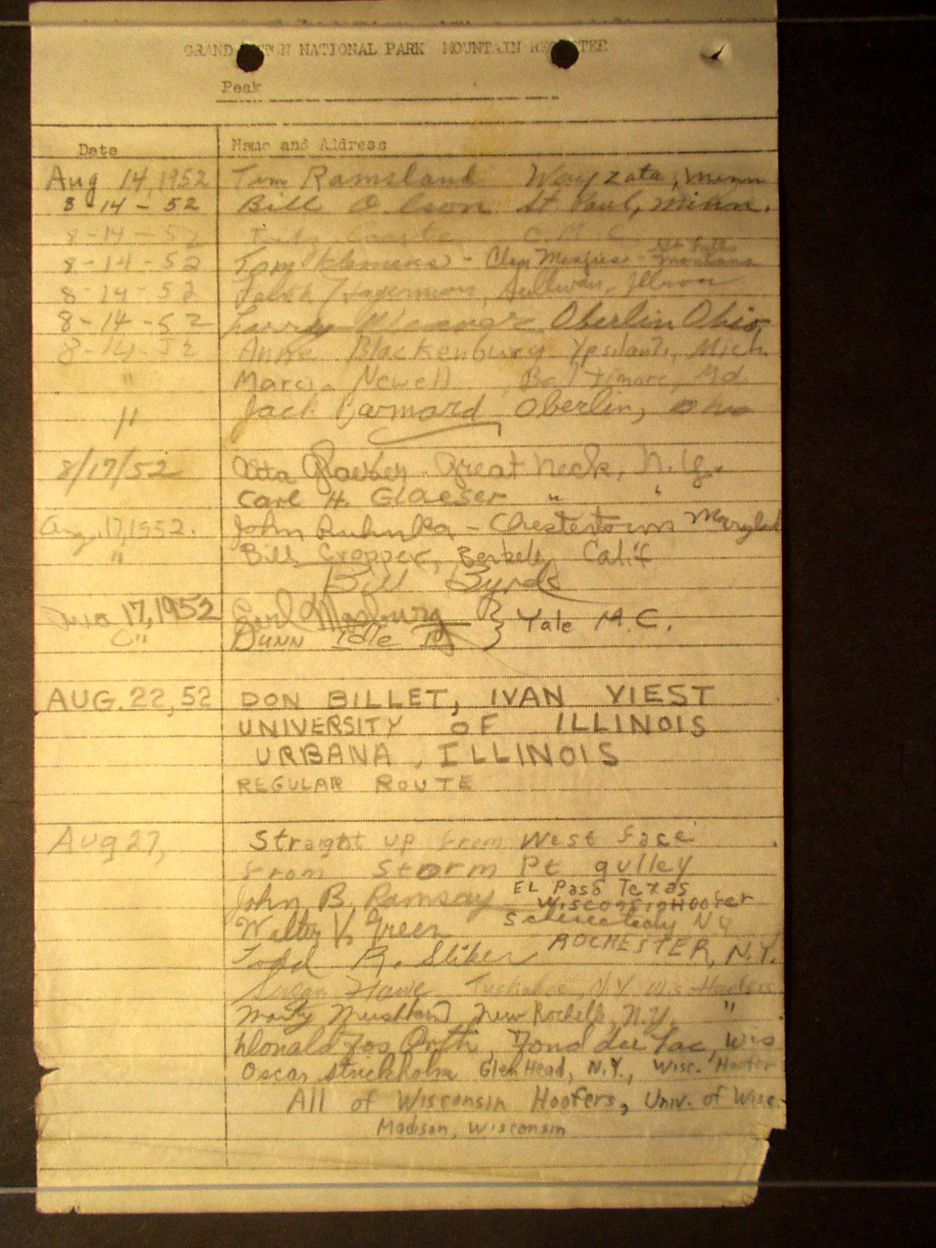 GRAND TETON NATIONAL PARK MOUNTAIN REGISTER
Peak
Date Name and Address
Aug 14, 1952 Tom Ramsland Wayzata, Minn
8-14-52 Bill Olson St Paul, Minn.
8-14-52 Fritz C.M.C.
8-14-52 Tom - Glen - Gt Falls Montana
8-14-52 Hagerman, Sullivan, Illinois
8-14-52 Larry Oberlin Ohio
8-14-52 Anne Blackenburg Ypsilanti, Mich.
" Marcia Newell Baltimore, Md
" Jack Barnard Oberlin, Ohio
8/17/52 Great Neck, N.Y.
Carl H. Glaeser " "
Aug. 17, 1952. John - Chestertown Maryland
" Bill Cropper, Berkeley Calif
Bill Byrds
Aug 17, 1952 Earl } Yale M.C.
" Dunn
AUG. 22, 52 DON BILLET, IVAN VIEST
UNIVERSITY OF ILLINOIS
URBANA, ILLINOIS
REGULAR ROUTE
Aug 27, Straight up from West face
from Storm Pt gulley
John B. Ramsay EL Paso Texas
Wisconsin Hoofer
Walter V. Green Schenectady NY
Todd R. ROCHESTER, N.Y.
Susan Howe Tuckahoe, N.Y. Wis Hoofers
Marty New Rochelle N.Y. "
Donald Jos Orth, Fond du Lac, Wis
Oscar Strickholm Glen Head, N.Y., Wisc. Hoofer
All of Wisconsin Hoofers, Univ. of Wisc.
Madison, Wisconsin